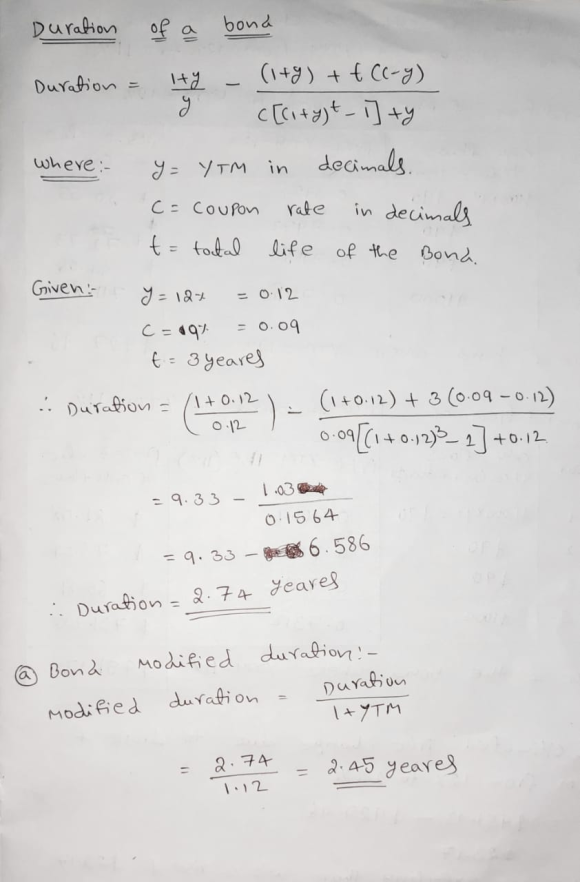 Duration of a bond
Duration = 1+y/y - (1+y) + t(c-y)/c[(1+y)^t - 1] + y
where:- y = YTM in decimals.
C = Coupon rate in decimals
t = total life of the Bond.
Given:- y = 12% = 0.12
C = 09% = 0.09
t = 3 yeares
∴ Duration = (1+0.12/0.12) - (1+0.12) + 3(0.09 - 0.12)/0.09[(1+0.12)^3 - 1] + 0.12
= 9.33 - 1.03/0.1564
= 9.33 - 6.586
∴ Duration = 2.74 yeares
(a) Bond Modified duration:-
Modified duration = Duration/1+YTM
= 2.74/1.12 = 2.45 yeares